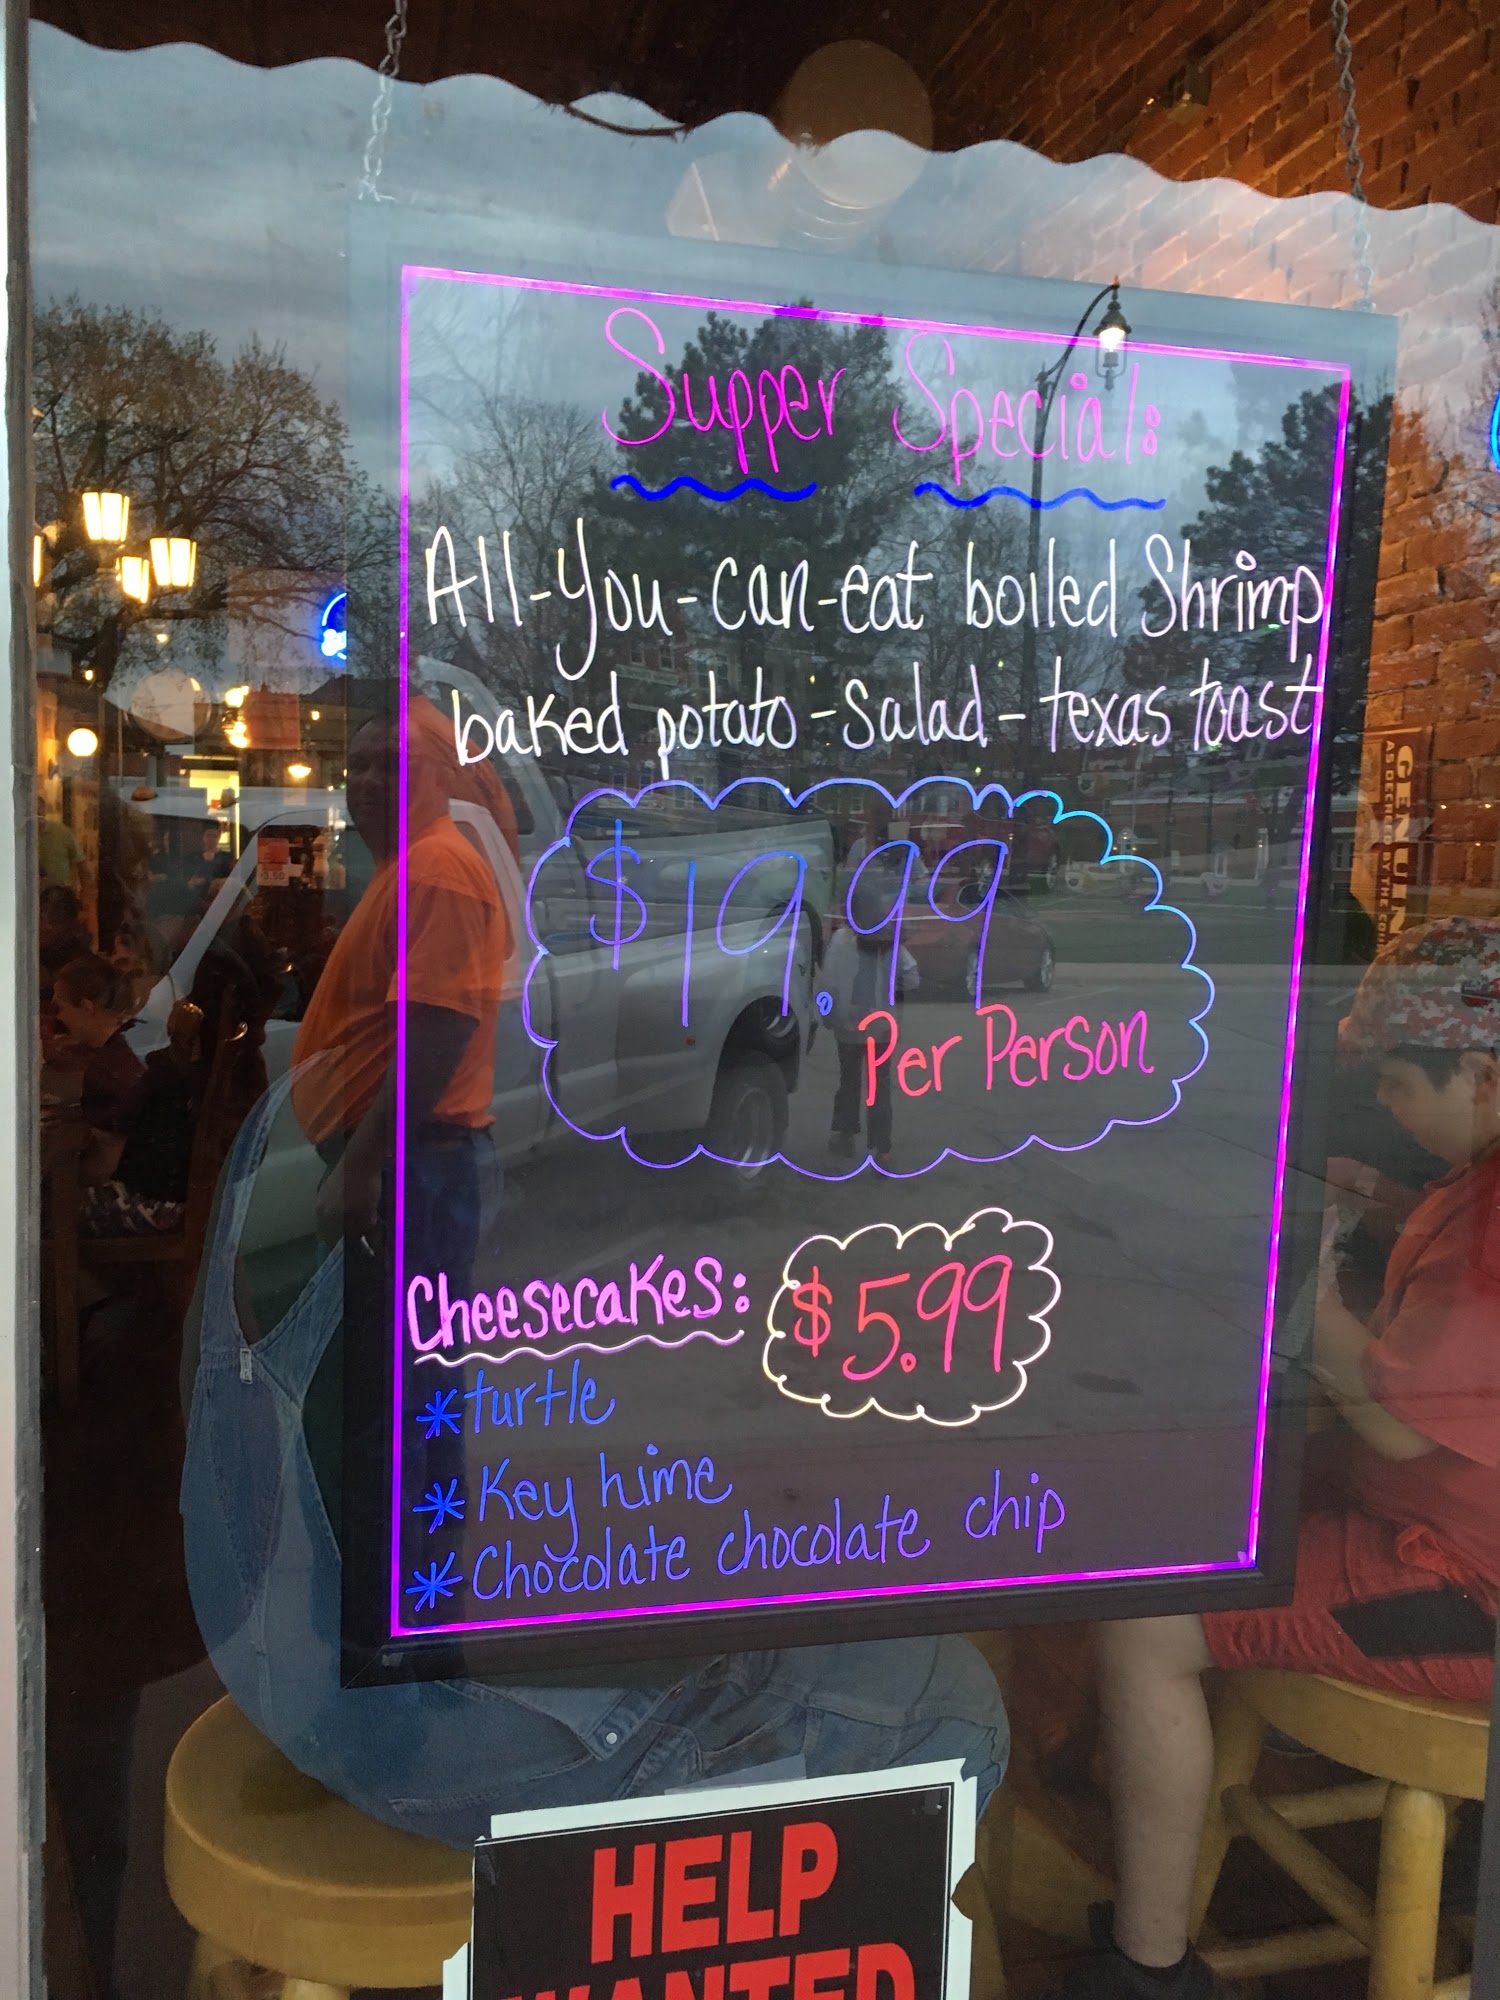 Supper Special:
All-You-can-eat boiled Shrimp
baked potato - Salad - texas toast
$19.99
Per Person
Cheesecakes: $5.99
*turtle
*Key hime
*Chocolate chocolate chip
GENUIN
AS DECIDED BY THE COU
HELP
WANTED